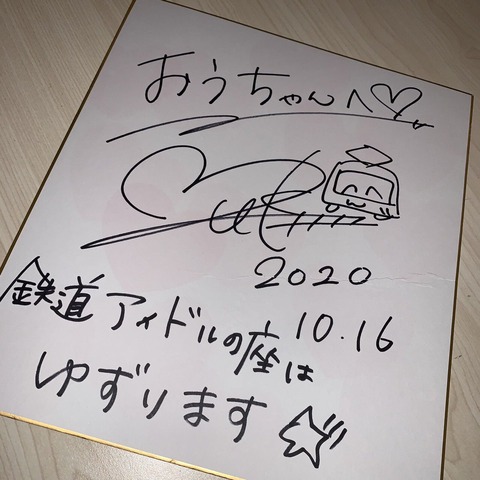 おうちゃんへ♡
2020
10.16
鉄道アイドルの座は
ゆずります